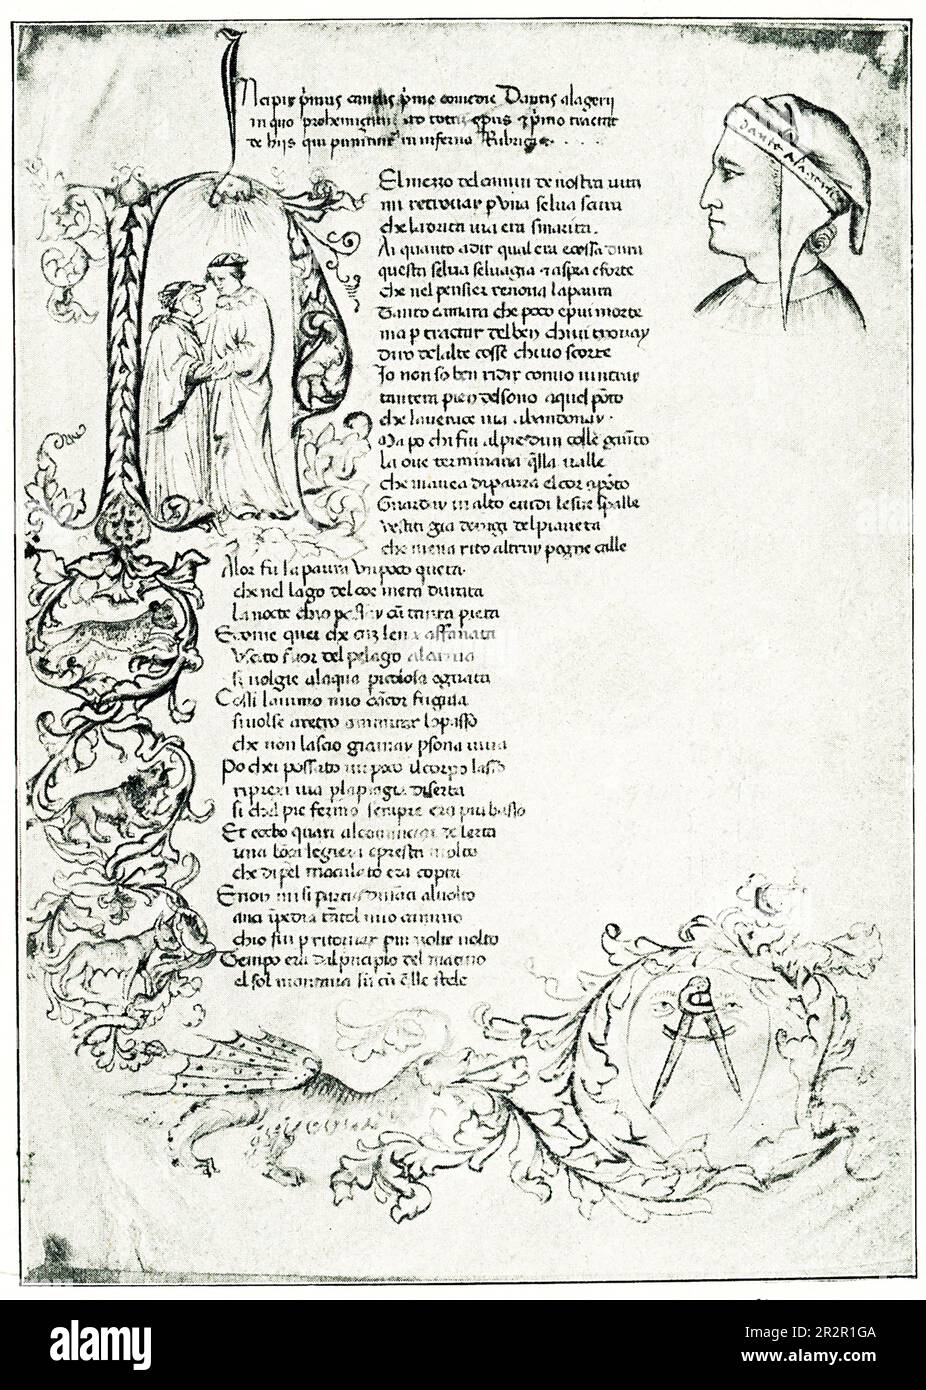 Incipit p'mus cantus p'me comedie Dantis alagerii
in quo prohemizatur ad totū opus & p'mo tractat
de hiis qui puniūtur in inferno Rubrica
Dante Alageri
NEl mezo del camin de nostra uita
mi retrouay p una selua scura
che la drita uia era smarita.
Ai quanto a dir qual era e cossa dura
questa selua seluagia & aspra e forte
che nel pensier renoua la paura
Tanto e amara che poco e piu morte
ma p tractar del ben ch iui trouay
diro de l alte cosse ch i uo scorte
Io non so ben ridir como uintray
tantera pien del sono a quel pōto
che la uerace uia abandonay.
Ma po ch i fui al pie dun colle gūto
la oue terminaua q̄lla ualle
che mauea di paura el cor apōto
Guarday in alto e uidi le sue spalle
uestiti gia de ragi del pianeta
che mena rito altruy p ogne calle
Alor fu la paura un poco queta.
che nel lago del cor mera durata
la nocte chio passay cū tanta pieta
E come quei che cū lena affanata
uscito fuor del pelago a la riua
si uolgie a laqua picolosa e guata
Cossi lanimo mio cācor fugiua
si uolse aretro a mirar lo passo
che non lascio giamay psona uiua
Po chei possato un poco il corpo lasso
ripresi uia p la piagia diserta
si chel pie fermo sempre era piu basso
Et eccho quasi al cominciar de lerta
una lōza legiera e presta molto
che di pel maculato era coperta
E non mi si partia dināci al uolto
anci īpedia tātel mio camino
chio fui p ritornar piu uolte uolto
Tempo era dal principio del matino
el sol montaua sū cū q̄lle stele
alamy
Image ID: 2R2R1GA
www.alamy.com